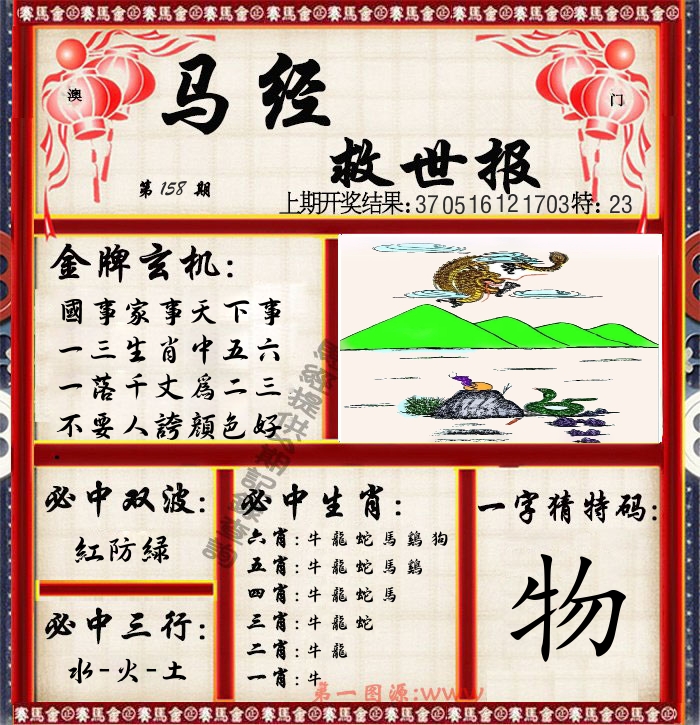 賽馬會㊣賽馬會㊣賽馬會㊣賽馬會㊣賽馬會㊣賽馬會㊣賽馬會
澳
门
马经
救世报
第158期
上期开奖结果:37 05 16 12 17 03 特: 23
金牌玄机:
國事家事天下事
一三生肖中五六
一落千丈爲二三
不要人誇顏色好
必中双波:
紅防綠
必中三行:
水-火-土
必中生肖:
六肖:牛龍蛇馬鷄狗
五肖:牛龍蛇馬鷄
四肖:牛龍蛇馬
三肖:牛龍蛇
二肖:牛龍
一肖:牛
一字猜特码:
物
第一图源:www